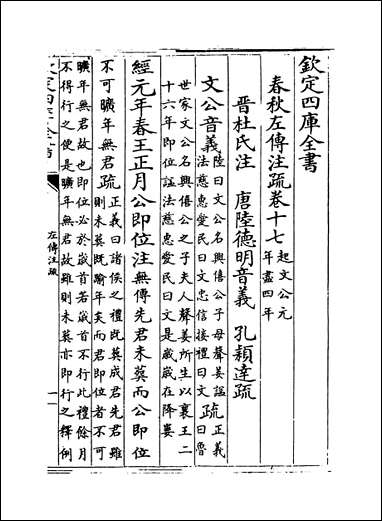 欽定四庫全書
春秋左傳注疏卷十七起文公元
年盡四年
晉杜氏注　唐陸德明音義　孔穎達疏
文公音義陸曰文公名興僖公子母聲姜謚
法慈惠愛民曰文忠信接禮曰文疏正義
曰魯
世家文公名興僖公之子夫人聲姜所生以襄王二
十六年即位謚法慈惠愛民曰文是歲歲在降婁
經元年春王正月公即位注無傳先君未葬而公即位
不可曠年無君疏正義曰諸侯之禮既葬成君先君雖
則未葬既踰年矣而君即位者不可
曠年無君故也即位必於歲首若歲首不行此禮餘月
不得行之使是曠年無君故雖則未葬亦即行之釋例
左傳注疏
一